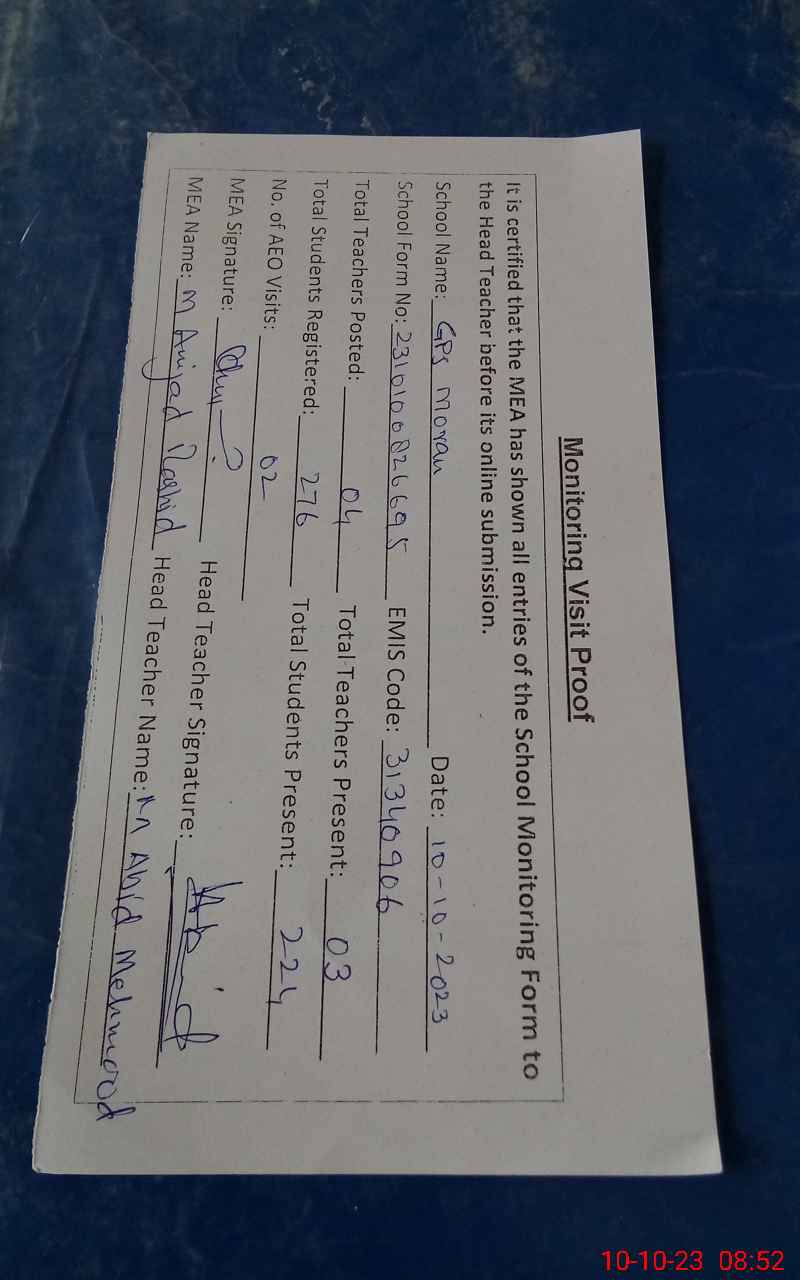 Monitoring Visit Proof
It is certified that the MEA has shown all entries of the School Monitoring Form to
the Head Teacher before its online submission.
School Name: GPS Moran Date: 10-10-2023
School Form No: 2310100826695 EMIS Code: 31340906
Total Teachers Posted: 04 Total Teachers Present: 03
Total Students Registered: 276 Total Students Present: 224
No. of AEO Visits: 02
MEA Signature: Head Teacher Signature: Abid
MEA Name: M Amjad Rashid Head Teacher Name: Abid Mehmood
10-10-23 08:52